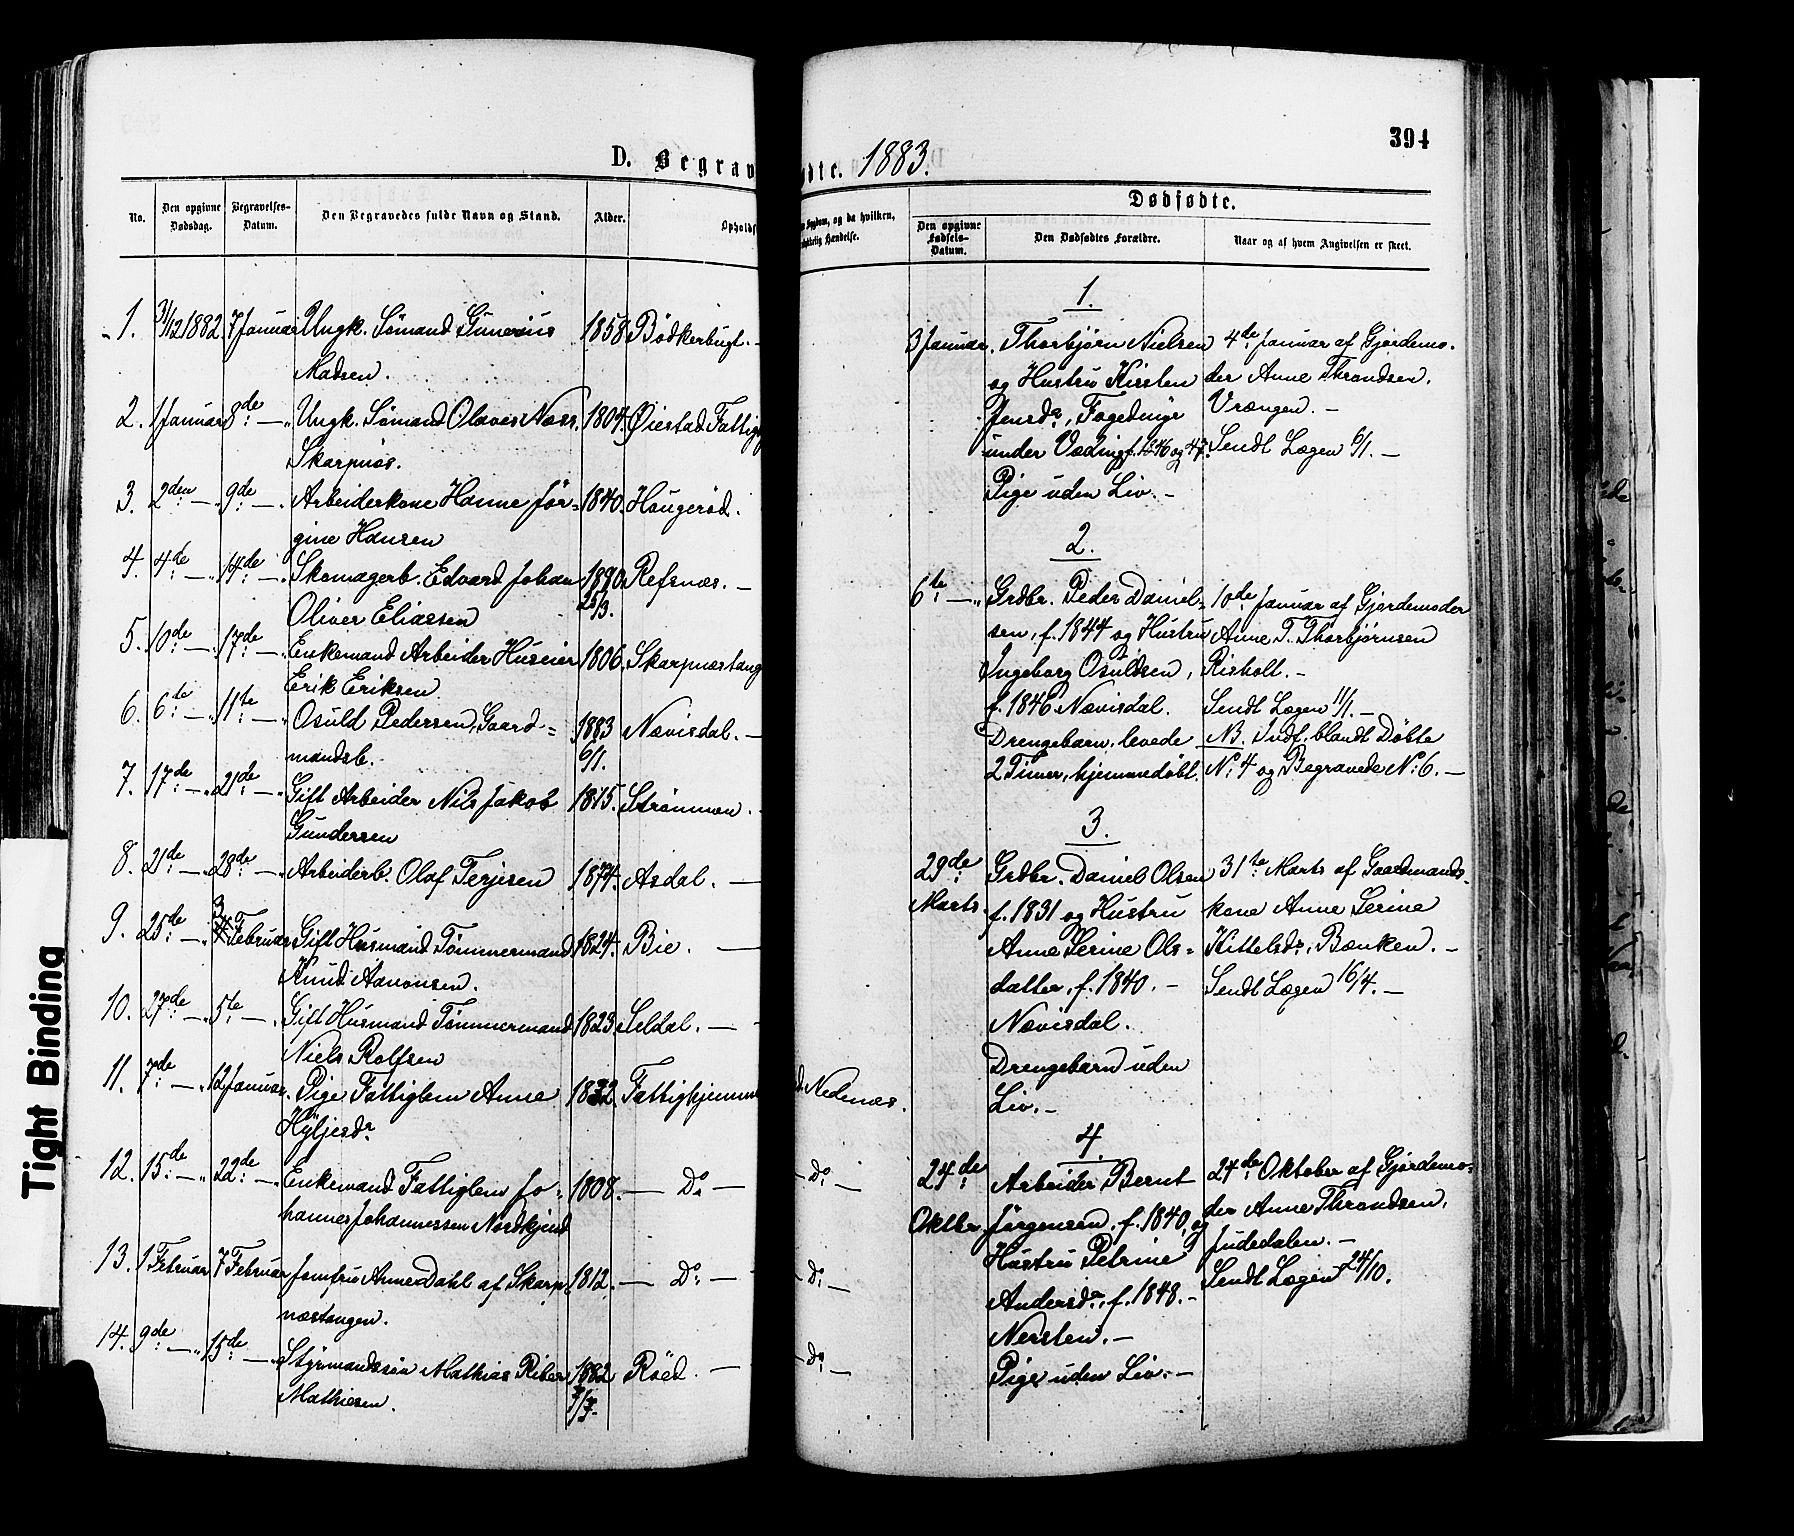 394
D. Begrav
dte. 1883.
No.
Den opgivne Dødsdag.
Begravelses-Datum.
Den Begravedes fulde Navn og Stand.
Alder.
Opholds
Sygdom, og da hvilken,
Hændelse.
Dødfødte.
Den opgivne Fødsels-Datum.
Den Dødfødtes Forældre.
Naar og af hvem Angivelsen er skeet.
1. 31/12 1882 7 Januar Ungk. Sømand Gunerius 1858. Bødkerbugt. -
Madsen.
2. 1 Januar 8de: - " Ungk. Sømand Olaves Næss. 1804. Øiestad Fattig
Skarpnæs.
3. 2den - " 9de - " Arbeiderkone Hanne Jør= 1840. Haugerød.
gine Hansen
4. 4de: - " 14de: - " Skomagerb. Edvard Johan 1890 Refsnæs. -
Oliver Eliassen 25/3.
5. 10de: - " 17de: - " Enkemand Arbeider Huseier 1806. Skarpnæstang
Erik Eriksen
6. 6te: - " 11te: - " Osuld Pedersen, Gaard= 1883 Nævisdal. -
mandsb. 6/1.
7. 17de: - " 21de: - " Gift Arbeider Nils Jakob 1815. Strømmen.
Gundersen
8. 21de: - " 28de: - " Arbeiderb. Olaf Terjesen 1874. Asdal. -
9. 25de: - " 3 Februar Gift Husmand Tømmermand 1824. Bie. -
Knud Aanonsen.
10. 27de: - " 5te: - " Gift Husmand Tømmermand 1823 Seldal. - -
Niels Rolfsen
11. 7de: - " 12 Januar. Pige Fattiglem Anne 1832 Fattighjemme
Nedenæs.
12. 15de: - " 22de: - " Enkemand Fattiglem Jo= 1808. - Do - - Do: -
hannes Johannessen Nordkjend
13. 1 Februar 7 Februar Jomfru Anne Dahl af Skarp= 1812. - Do: - - Do: -
næstangen.
14. 9de: - " 15de: - " Styrmandssøn Mathias Riber 1882 Røed. - - Do: -
Mathiesen.
1.
3 Januar. Thorbjørn Nielsen 4de: Januar af Gjordemo-
og Hustru Kirsten der Anne Thrandsen.
Jensdr, Fogedmyr Vrængen. -
under Væding, f. 1846 og 47. Sendt Lægen 6/1. -
Pige uden Liv. -
2.
6te: - " Grdbr. Peder Daniel= 10de: Januar af Gjordemoder
sen, f. 1844 og Hustru Anne T. Thorbjørnsen
Ingeborg Osuldsen, Risholt. -
f. 1846 Nævisdal. Sendt Lægen 11/1. -
Drengebarn, levede NB. Indt. blandt Døbte
2 Timer, hjemmedøbt. No: 4 og Begravede No: 6. -
3.
29de: Grdbr. Daniel Olsen 31te Marts af Gaardmands-
Marts. f. 1831 og Hustru kone Anne Serine
Anne Serine Ols= Kittelsdr, Bænken. -
datter, f. 1840. - Sendt Lægen 16/4. -
Nævisdal.
Drengebarn uden
Liv. -
4.
24de: Arbeider Bernt 24de: Oktober af Gjordemo-
Oktbr. Jørgensen, f. 1840, og der Anne Thrandsen,
Hustru Petrine Judedalen. -
Andersdr, f. 1848. - Sendt Lægen 24/10.
Nersten. -
Pige uden Liv. -
Tight Binding